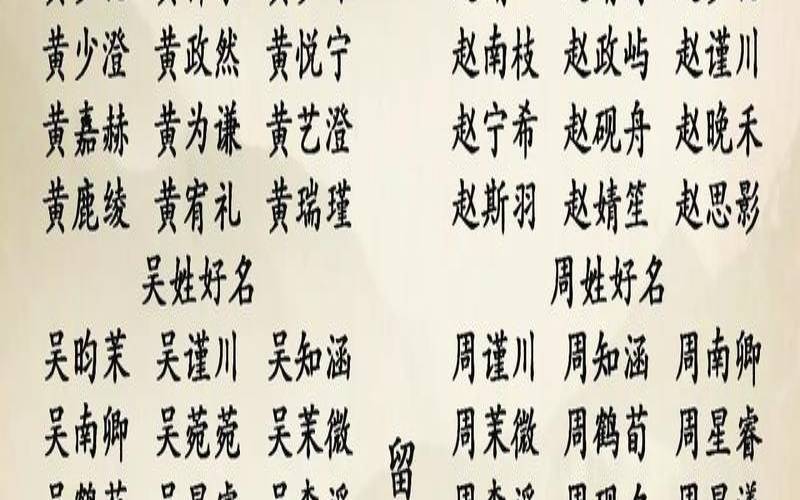 黄少澄 黄政然 黄悦宁
黄嘉赫 黄为谦 黄艺澄
黄鹿绫 黄宥礼 黄瑞瑾
吴姓好名
吴昀茉 吴谨川 吴知涵
吴南卿 吴菀菀 吴茉微
赵南枝 赵政屿 赵谨川
赵宁希 赵砚舟 赵晚禾
赵斯羽 赵婧笙 赵思影
周姓好名
周谨川 周知涵 周南卿
周茉微 周鹤荀 周星睿
留